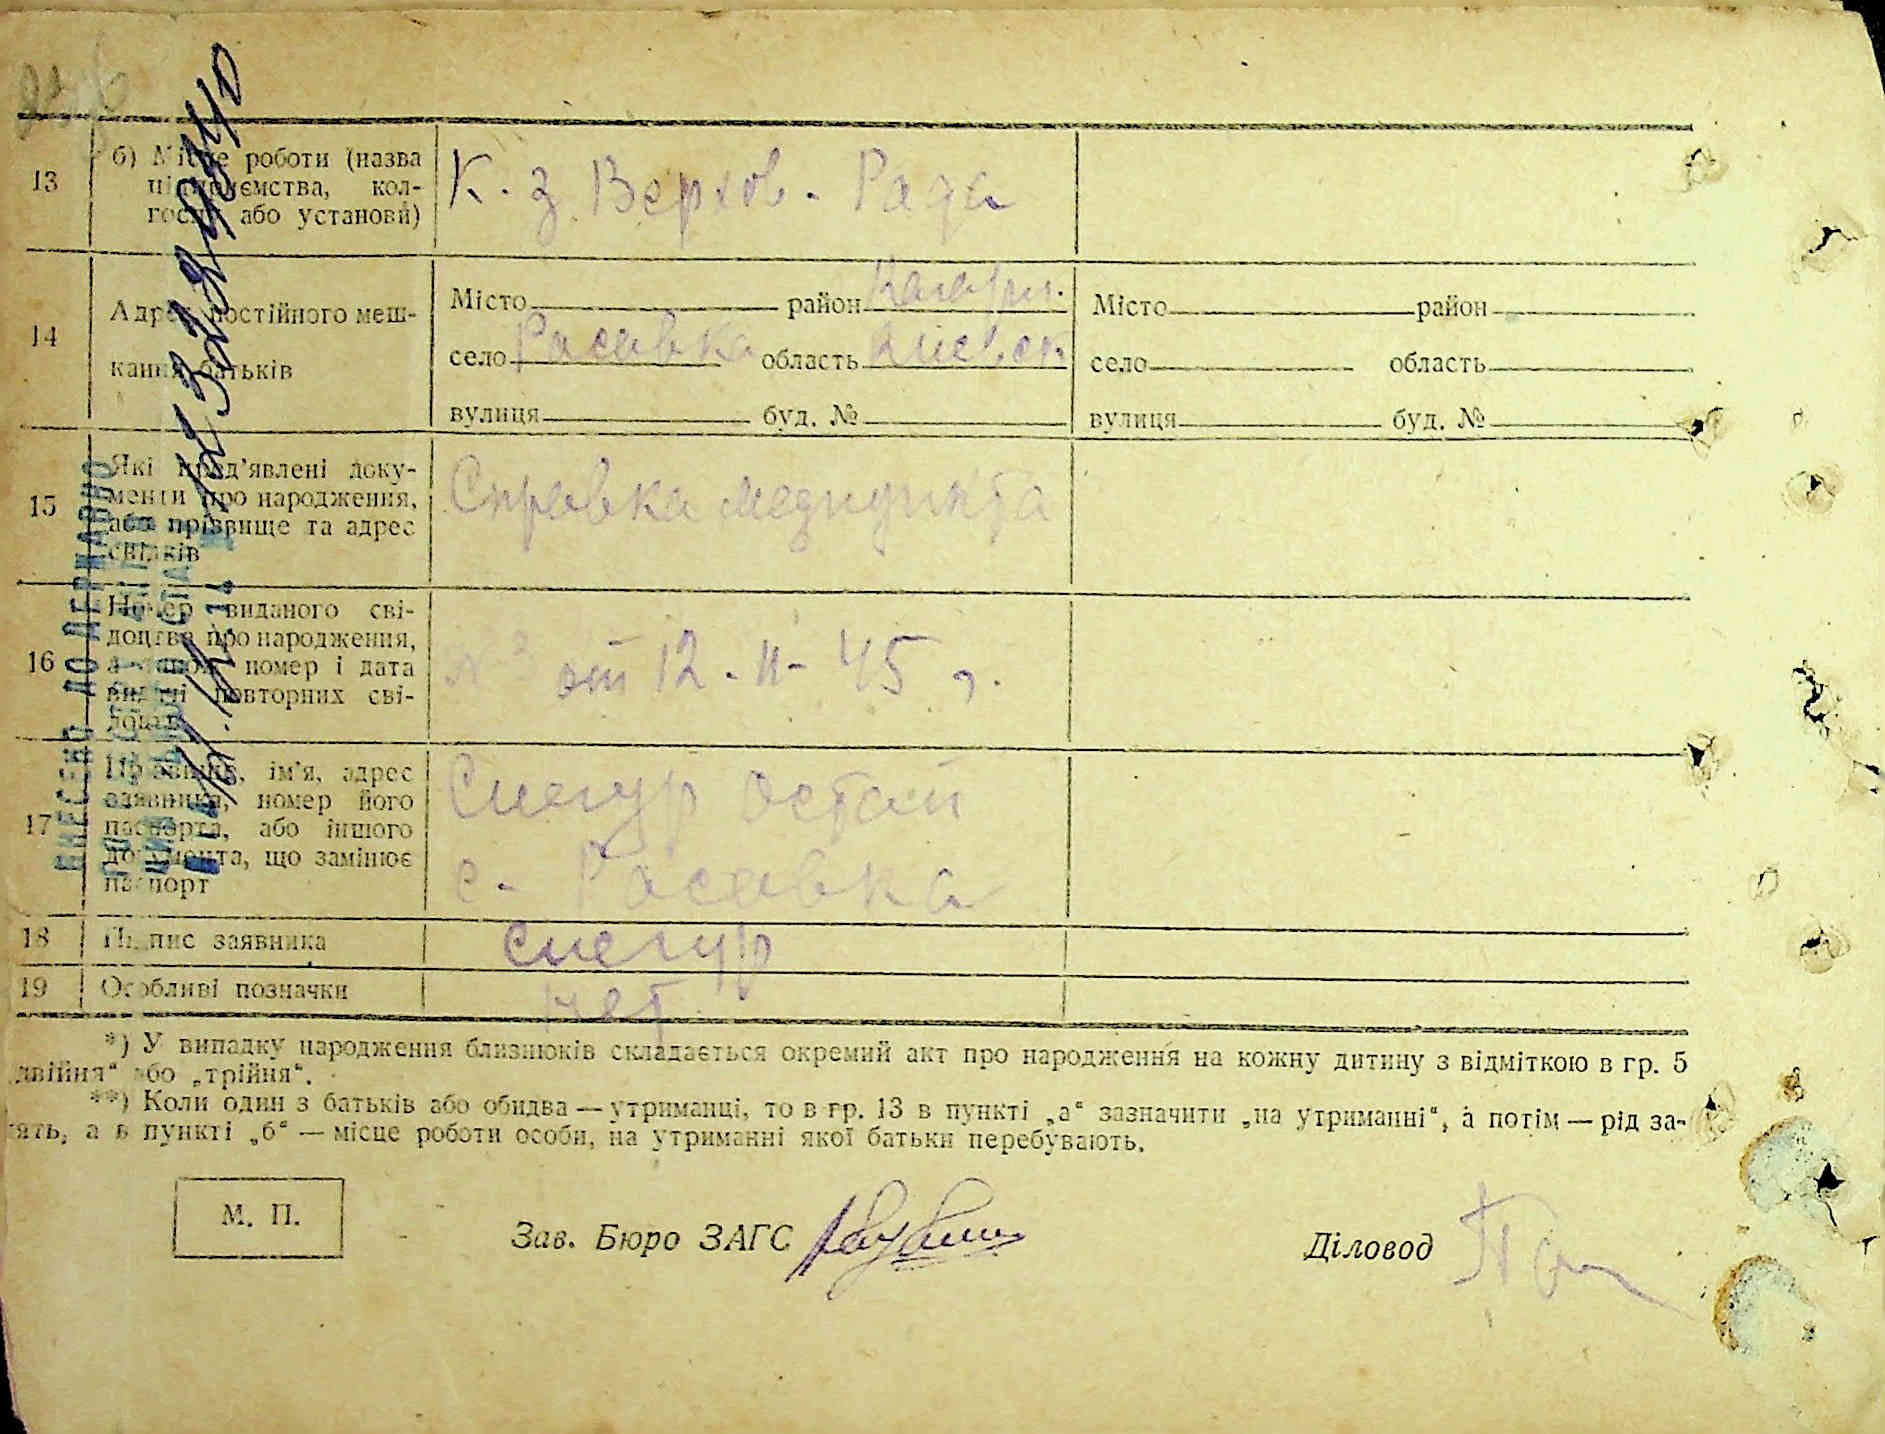 13
б) Місце роботи (назва
підприємства, кол-
госпу або установи)
К-з Верхов. Рада
14
Адрес постійного меш-
кання батьків
Місто район Кагарл.
село Росавка область Киевск
вулиця буд. №
Місто район
село область
вулиця буд. №
15
Які пред’явлені доку-
менти про народження,
або прізвище та адрес
свідків
Справка медпункта
16
Номер виданого сві-
доцтва про народження,
а також номер і дата
видачі повторних сві-
доцтв
от 12-II-45 г.
17
Прізвище, ім’я, адрес
заявника, номер його
паспорта, або іншого
документа, що замінює
паспорт
Снегур Остап
с. Росавка
18
Підпис заявника
Снегур
19
Особливі позначки
нет
*) У випадку народження близнюків складається окремий акт про народження на кожну дитину з відміткою в гр. 5
„двійня“ або „трійня“.
**) Коли один з батьків або обидва — утриманці, то в гр. 13 в пункті „а“ зазначити „на утриманні“, а потім — рід за-
нять, а в пункті „б“ — місце роботи особи, на утриманні якої батьки перебувають.
М. П.
Зав. Бюро ЗАГС
Діловод
ВНЕСЕНО ДО ДЕРЖАВНОГО